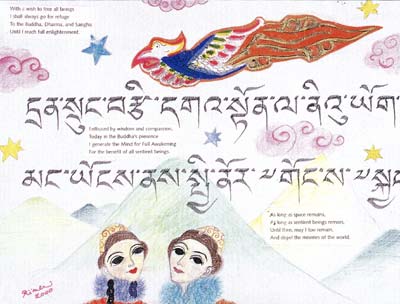 With a wish to free all beings
I shall always go for refuge
To the Buddha, Dharma, and Sangha
Until I reach full enlightenment.
དྲན་སྲུང་བརྩི་དགའ་སྟོན་ལ་ནིའུ་ཡོག་
Enthused by wisdom and compassion,
Today in the Buddha's presence
I generate the Mind for Full Awakening
For the benefit of all sentient beings.
མང་ཡོངས་ནས་སྤྱི་ནོར་༸གོངས་ས་༸
As long as space remains,
As long as sentient beings remain,
Until then, may I too remain,
And dispel the miseries of the world.
2000